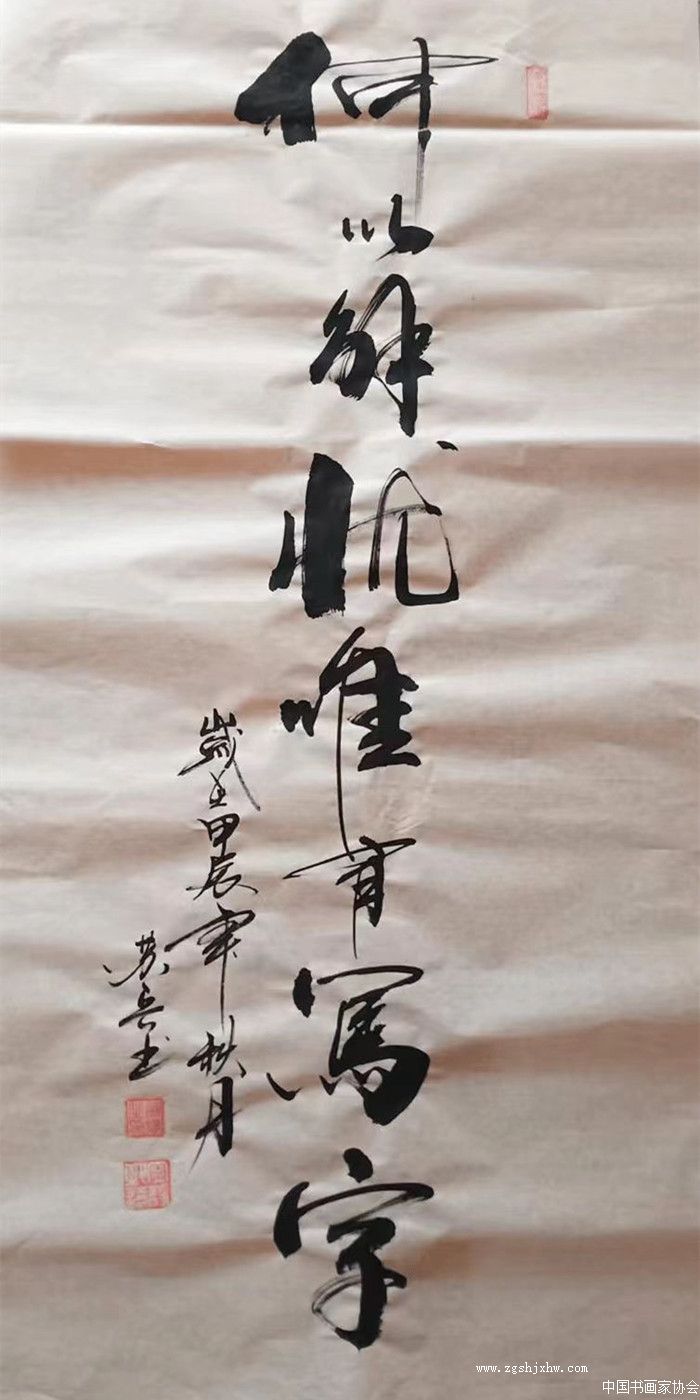 何以解忧唯有写字
歲在甲辰年秋月
苏兵书
www.zgshjxhw.com
中国书画家协会